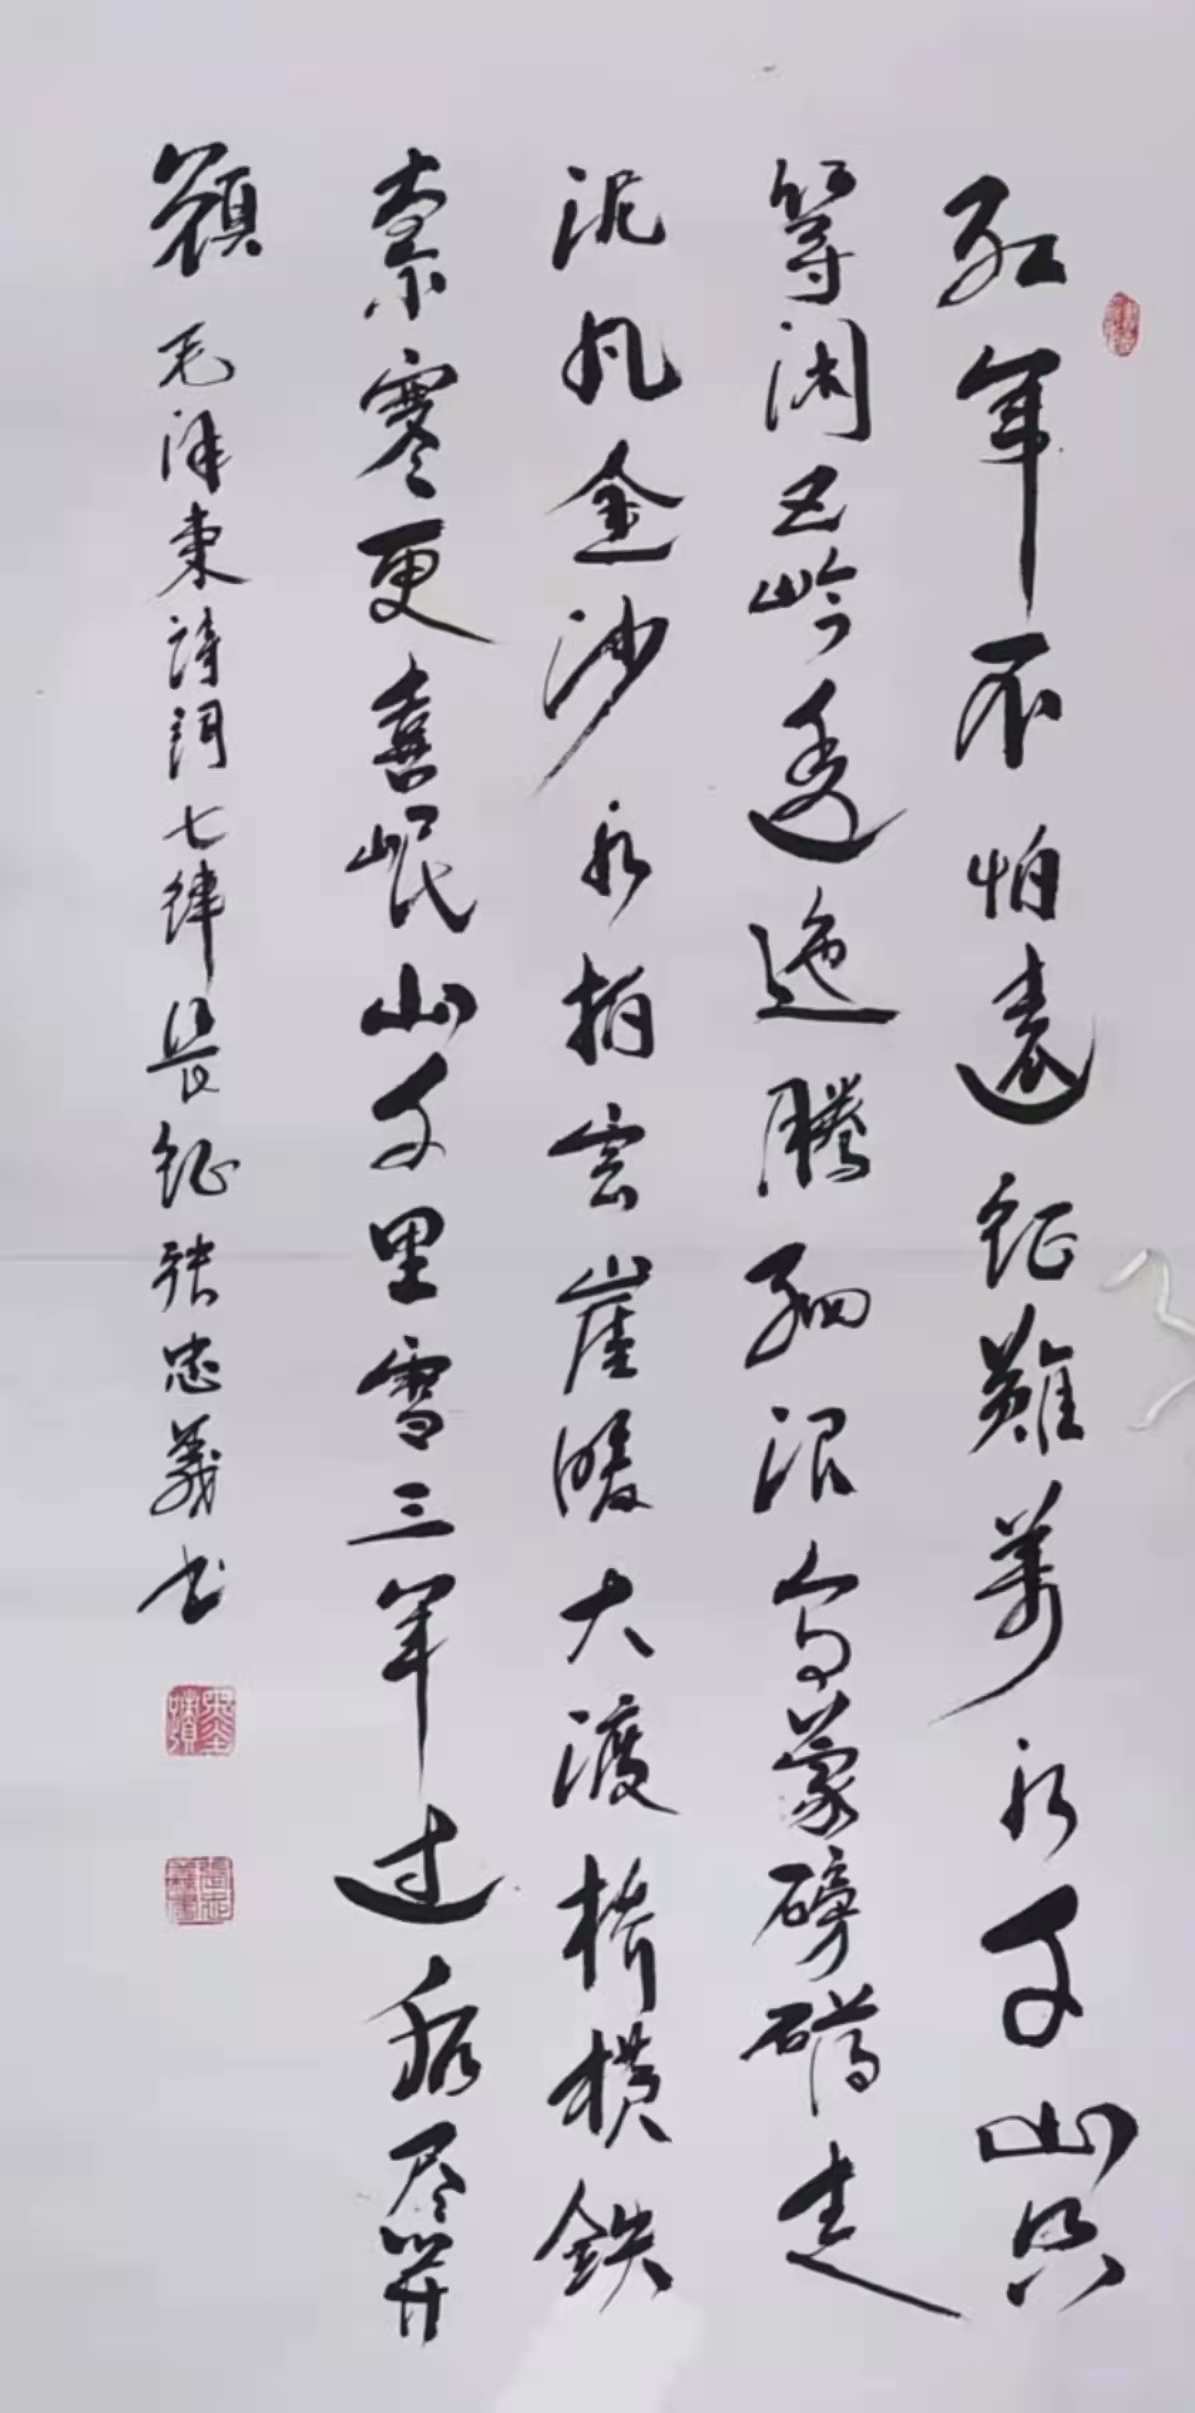 红军不怕遠征難萬水千山只
等闲五岭逶迤腾细浪乌蒙磅礴走
泥丸金沙水拍雲崖暖大渡桥横鉄
索寒更喜岷山千里雪三军过後尽開
顔 毛泽東詩詞七律長征 张忠義书